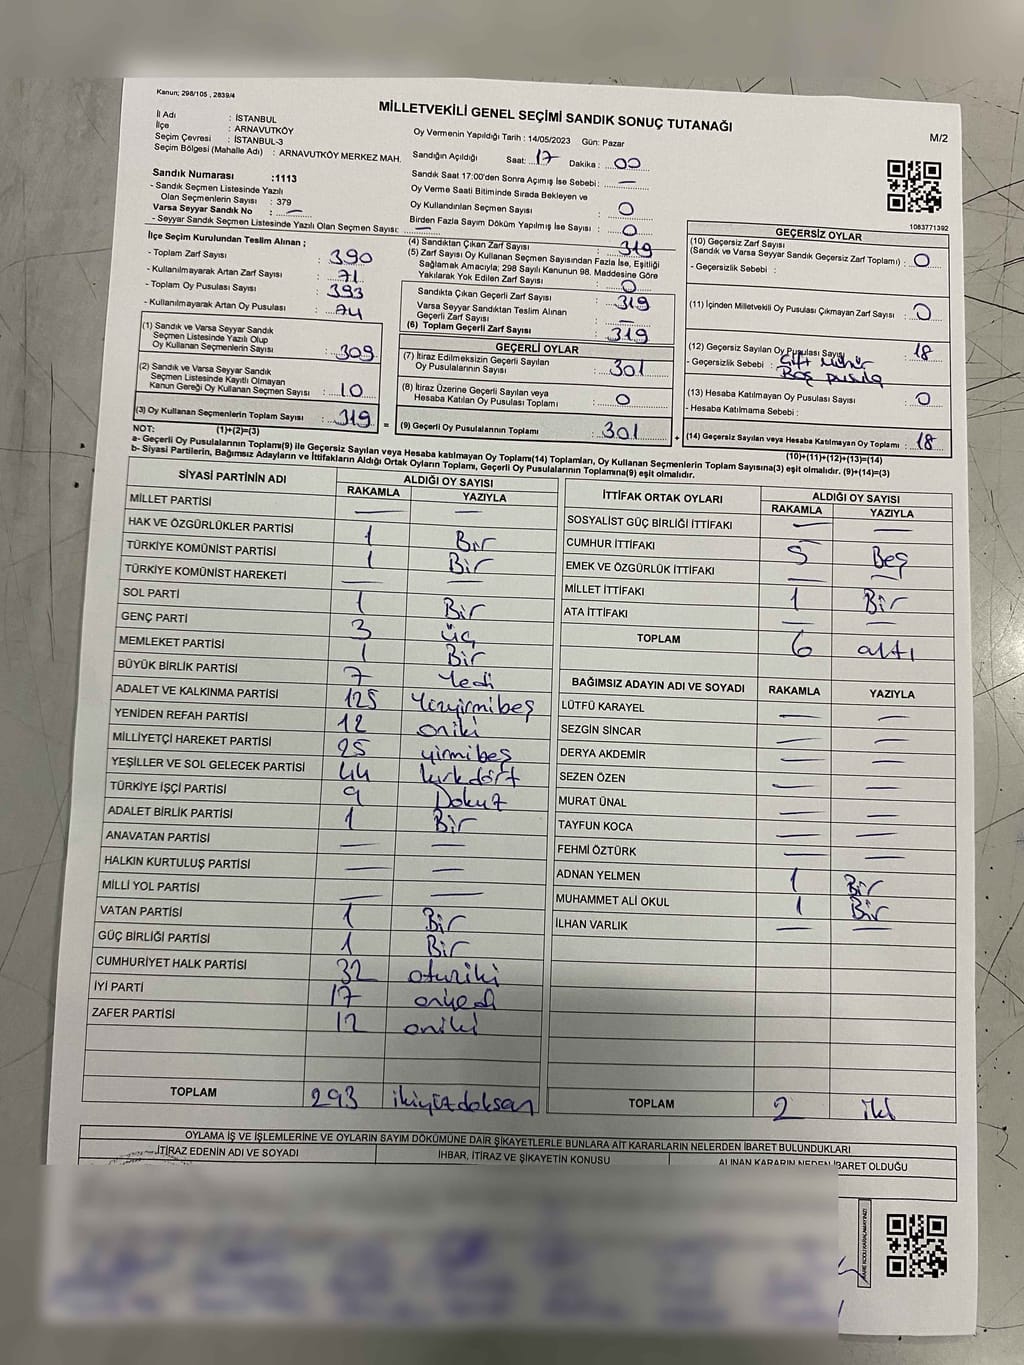 Kanun; 298/105 , 2839/4
MİLLETVEKİLİ GENEL SEÇİMİ SANDIK SONUÇ TUTANAĞI
M/2
İl Adı : İSTANBUL
İlçe : ARNAVUTKÖY
Seçim Çevresi : İSTANBUL-3
Seçim Bölgesi (Mahalle Adı) : ARNAVUTKÖY MERKEZ MAH.
Oy Vermenin Yapıldığı Tarih : 14/05/2023 Gün: Pazar
Sandığın Açıldığı Saat: 17 Dakika : 00
Sandık Saat 17:00'den Sonra Açımış İse Sebebi : —
Oy Verme Saati Bitiminde Sırada Bekleyen ve
Oy Kullandırılan Seçmen Sayısı : 0
Birden Fazla Sayım Döküm Yapılmış İse Sayısı : 0
Sandık Numarası :1113
- Sandık Seçmen Listesinde Yazılı
Olan Seçmenlerin Sayısı : 379
Varsa Seyyar Sandık No : —
- Seyyar Sandık Seçmen Listesinde Yazılı Olan Seçmen Sayısı: —
1083771392
İlçe Seçim Kurulundan Teslim Alınan ;
- Toplam Zarf Sayısı : 390
- Kullanılmayarak Artan Zarf Sayısı : 71
- Toplam Oy Pusulası Sayısı : 393
- Kullanılmayarak Artan Oy Pusulası : 74
(1) Sandık ve Varsa Seyyar Sandık
Seçmen Listesinde Yazılı Olup
Oy Kullanan Seçmenlerin Sayısı : 309
(2) Sandık ve Varsa Seyyar Sandık
Seçmen Listesinde Kayıtlı Olmayan
Kanun Gereği Oy Kullanan Seçmen Sayısı : 10
(3) Oy Kullanan Seçmenlerin Toplam Sayısı : 319 =
(4) Sandıktan Çıkan Zarf Sayısı : 319
(5) Zarf Sayısı Oy Kullanan Seçmen Sayısından Fazla İse, Eşitliği
Sağlamak Amacıyla; 298 Sayılı Kanunun 98. Maddesine Göre
Yakılarak Yok Edilen Zarf Sayısı : 0
Sandıkta Çıkan Geçerli Zarf Sayısı : 319
Varsa Seyyar Sandıktan Teslim Alınan
Geçerli Zarf Sayısı : —
(6) Toplam Geçerli Zarf Sayısı : 319
GEÇERLİ OYLAR
(7) İtiraz Edilmeksizin Geçerli Sayılan
Oy Pusulalarının Sayısı : 301
(8) İtiraz Üzerine Geçerli Sayılan veya
Hesaba Katılan Oy Pusulası Toplamı : 0
(9) Geçerli Oy Pusulalarının Toplamı : 301 +
GEÇERSİZ OYLAR
(10) Geçersiz Zarf Sayısı
(Sandık ve Varsa Seyyar Sandık Geçersiz Zarf Toplamı) : 0
- Geçersizlik Sebebi :
(11) İçinden Milletvekili Oy Pusulası Çıkmayan Zarf Sayısı : 0
(12) Geçersiz Sayılan Oy Pusulası Sayısı : 18
- Geçersizlik Sebebi : Çift Mühür
Boş pusula
(13) Hesaba Katılmayan Oy Pusulası Sayısı : 0
- Hesaba Katılmama Sebebi :
(14) Geçersiz Sayılan veya Hesaba Katılmayan Oy Toplamı : 18
NOT: (1)+(2)=(3)
(10)+(11)+(12)+(13)=(14)
a- Geçerli Oy Pusulalarının Toplamı(9) ile Geçersiz Sayılan veya Hesaba katılmayan Oy Toplamı(14) Toplamları, Oy Kullanan Seçmenlerin Toplam Sayısına(3) eşit olmalıdır. (9)+(14)=(3)
b- Siyasi Partilerin, Bağımsız Adayların ve İttifakların Aldığı Ortak Oyların Toplamı, Geçerli Oy Pusulalarının Toplamına(9) eşit olmalıdır.
SİYASİ PARTİNİN ADI ALDIĞI OY SAYISI
RAKAMLA YAZIYLA
MİLLET PARTİSİ — —
HAK VE ÖZGÜRLÜKLER PARTİSİ 1 Bir
TÜRKİYE KOMÜNİST PARTİSİ 1 Bir
TÜRKİYE KOMÜNİST HAREKETİ — —
SOL PARTİ 1 Bir
GENÇ PARTİ 3 üç
MEMLEKET PARTİSİ 1 Bir
BÜYÜK BİRLİK PARTİSİ 7 Yedi
ADALET VE KALKINMA PARTİSİ 125 Yüzyirmibeş
YENİDEN REFAH PARTİSİ 12 oniki
MİLLİYETÇİ HAREKET PARTİSİ 25 yirmibeş
YEŞİLLER VE SOL GELECEK PARTİSİ 44 kırkdört
TÜRKİYE İŞÇİ PARTİSİ 9 Dokuz
ADALET BİRLİK PARTİSİ 1 Bir
ANAVATAN PARTİSİ — —
HALKIN KURTULUŞ PARTİSİ — —
MİLLİ YOL PARTİSİ — —
VATAN PARTİSİ 1 Bir
GÜÇ BİRLİĞİ PARTİSİ 1 Bir
CUMHURİYET HALK PARTİSİ 32 otuziki
İYİ PARTİ 17 onyedi
ZAFER PARTİSİ 12 oniki
TOPLAM 293 ikiyüzdoksan
İTTİFAK ORTAK OYLARI ALDIĞI OY SAYISI
RAKAMLA YAZIYLA
SOSYALİST GÜÇ BİRLİĞİ İTTİFAKI — —
CUMHUR İTTİFAKI 5 Beş
EMEK VE ÖZGÜRLÜK İTTİFAKI — —
MİLLET İTTİFAKI 1 Bir
ATA İTTİFAKI — —
TOPLAM 6 altı
BAĞIMSIZ ADAYIN ADI VE SOYADI RAKAMLA YAZIYLA
LÜTFÜ KARAYEL — —
SEZGİN SİNCAR — —
DERYA AKDEMİR — —
SEZEN ÖZEN — —
MURAT ÜNAL — —
TAYFUN KOCA — —
FEHMİ ÖZTÜRK — —
ADNAN YELMEN 1 Bir
MUHAMMET ALİ OKUL 1 Bir
İLHAN VARLIK — —
TOPLAM 2 iki
OYLAMA İŞ VE İŞLEMLERİNE VE OYLARIN SAYIM DÖKÜMÜNE DAİR ŞİKAYETLERLE BUNLARA AİT KARARLARIN NELERDEN İBARET BULUNDUKLARI
İTİRAZ EDENİN ADI VE SOYADI İHBAR, İTİRAZ VE ŞİKAYETİN KONUSU ALINAN KARARIN NEDEN İBARET OLDUĞU
KARE KODU KARALAMAYINIZ!